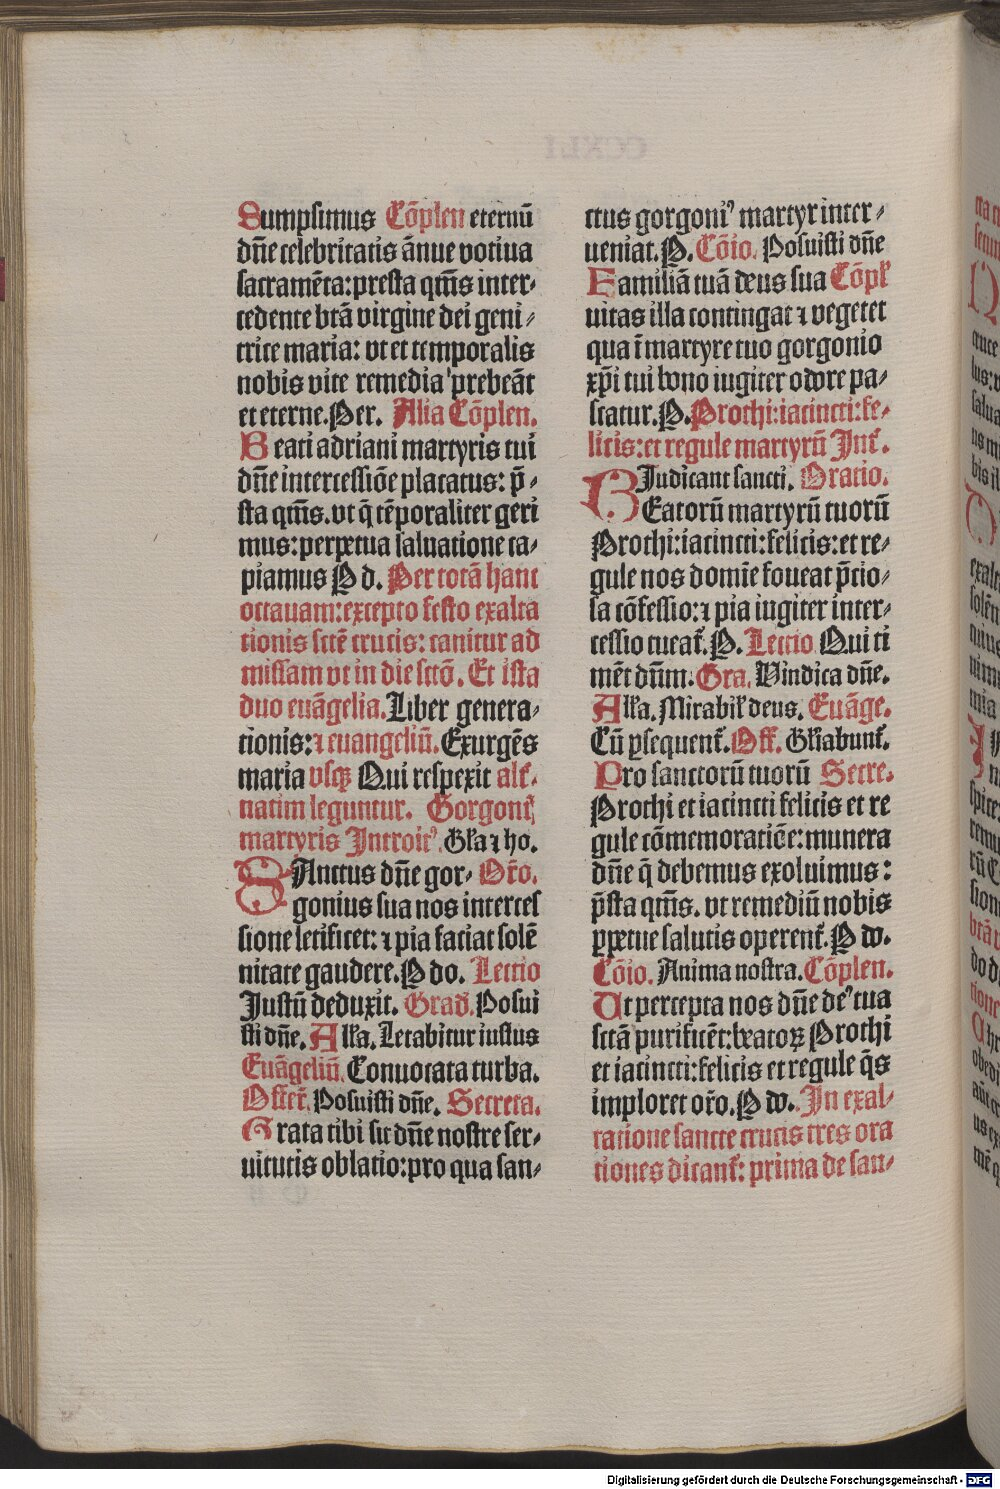 Sumpsimus Cõplen eternũ
dñe celebritatis ãnue votiua
sacramẽta: presta qm̃s inter⸗
cedente btã virgine dei geni⸗
trice maria: vt et temporalis
nobis vite remedia prebeãt
et eterne. Per. Alia Cõplen.
Beati adriani martyris tui
dñe intercessiõe placatus: p̃⸗
sta qm̃s. vt q̃ tẽporaliter geri
mus: perpetua saluatione ca⸗
piamus P d. Per totã hanc
octauam: excepto festo exalta
tionis sctẽ crucis: canitur ad
missam vt in die sctõ. Et ista
duo euãgelia. Liber genera⸗
tionis: ⁊ euangeliũ. Exurgẽs
maria vsqꝫ Qui respexit alt̃.
natim leguntur. Gorgonij
martyris Introit᷒. Gl̃a ⁊ ho.
SAnctus dñe gor⸗ Or̃o.
gonius sua nos interces
sione letificet: ⁊ pia faciat solẽ
nitate gaudere. P do. Lectio
Justũ deduxit. Grad̃. Posui
sti dñe. All̃a. Letabitur iustus
Euãgeliũ. Conuocata turba.
Offer̃. Posuisti dñe. Secreta.
Grata tibi sit dñe nostre ser⸗
uitutis oblatio: pro qua san⸗
ctus gorgoni᷒ martyr inter⸗
ueniat. P. Cõio. Posuisti dñe
Familiã tuã deus sua Cõpl̃
uitas illa contingat ⁊ vegetet
qua ĩ martyre tuo gorgonio
xp̃i tui bono iugiter odore pa⸗
scatur. P. Prothi: iacincti: fe⸗
licis: et regule martyrũ Int̃.
IJudicant sancti. Oratio.
BEatorũ martyrũ tuorũ
Prothi: iacincti: felicis: et re⸗
gule nos domĩe foueat p̃cio⸗
sa cõfessio: ⁊ pia iugiter inter⸗
cessio tueat̃. P. Lectio Qui ti
mẽt dñm. Gra. Vindica dñe.
All̃a. Mirabil̃ deus. Euãge.
Cũ ꝑsequent̃. Off̃. Gl̃iabunt̃.
Pro sanctorũ tuorũ Secre.
Prothi et iacincti felicis et re
gule cõmemoratiõe: munera
dñe q̃ debemus exoluimus:
p̃sta qm̃s. vt remediũ nobis
ꝑpetue salutis operent̃. P do.
Cõio. Anima nostra. Cõplen.
Ut percepta nos dñe de᷒ tua
sctã purificẽt: beatoꝝ Prothi
et iacincti: felicis et regule q̃s
imploret or̃o. P do. In exal⸗
tatione sancte crucis tres ora
tiones dicant̃: prima de san⸗
Digitalisierung gefördert durch die Deutsche Forschungsgemeinschaft - DFG